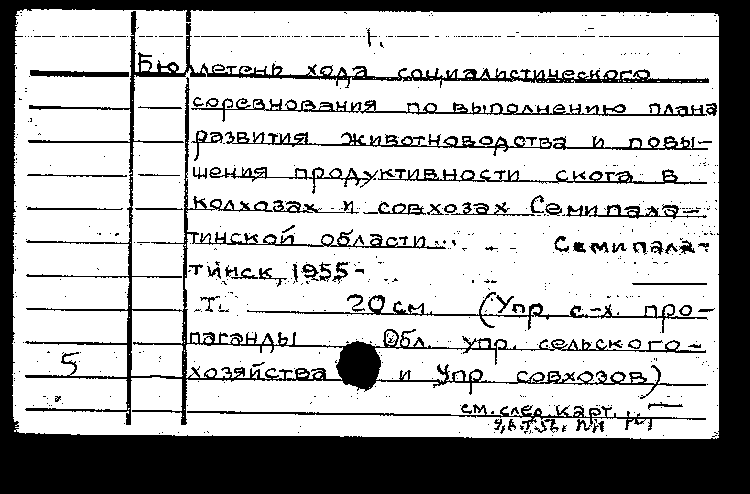 1.
Бюллетень хода социалистического
соревнования по выполнению плана
развития животноводства и повы-
шения продуктивности скота в
колхозах и совхозах Семипала-
тинской области... Семипала-
тинск, 1955-
т. 20 см. (Упр. с.-х. про-
паганды Обл. упр. сельского-
5 хозяйства и Упр совхозов)
см. след. карт.